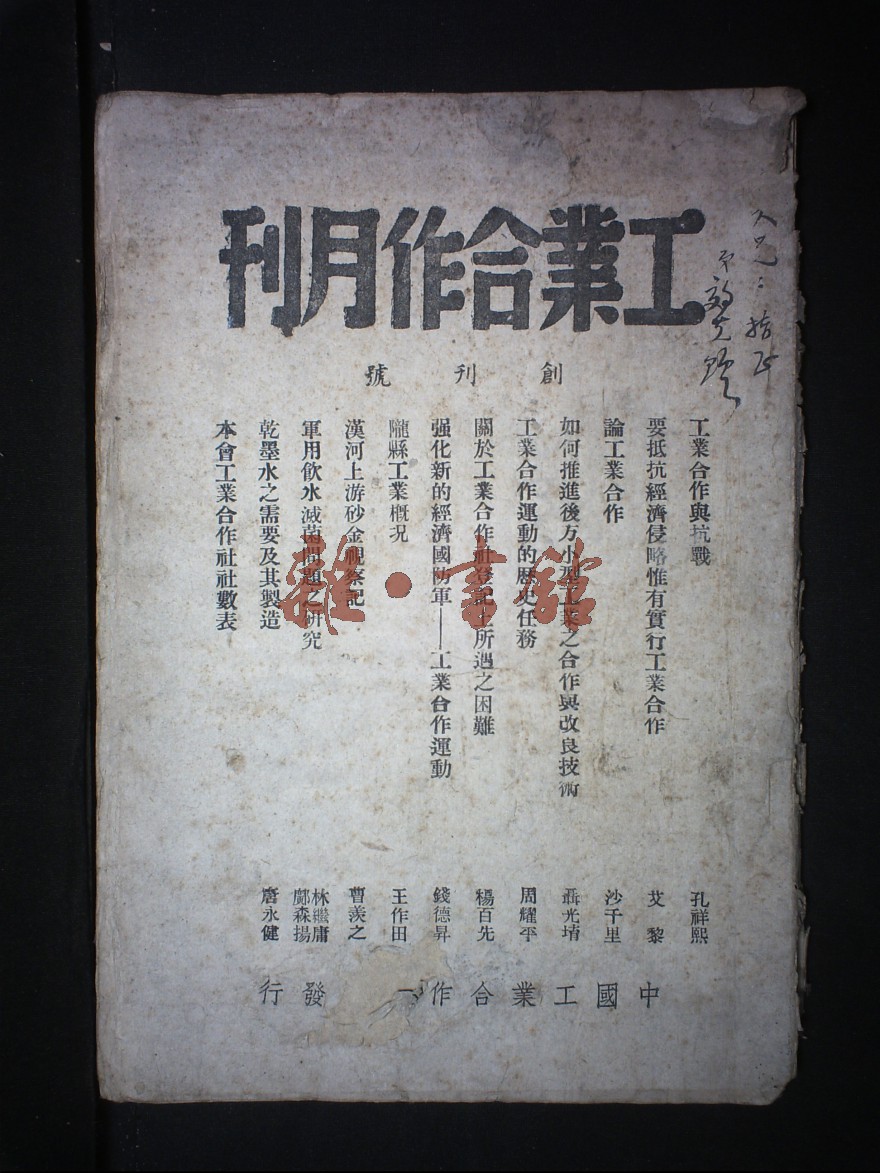 工業合作月刊
創刊號
工業合作與抗戰 孔祥熙
要抵抗經濟侵略惟有實行工業合作 艾黎
論工業合作 沙千里
如何推進後方小型工業之合作與改良技術 聶光堉
工業合作運動的歷史任務 周耀平
關於工業合作社登記上所遇之困難 楊百先
强化新的經濟國防軍——工業合作運動 錢德昇
隴縣工業概況 王作田
漢河上游砂金視察記 曹羨之
軍用飲水滅菌問題之研究 林繼庸 鄺森揚
乾墨水之需要及其製造 唐永健
本會工業合作社社數表
中國工業合作 發行
指正
雜·書館